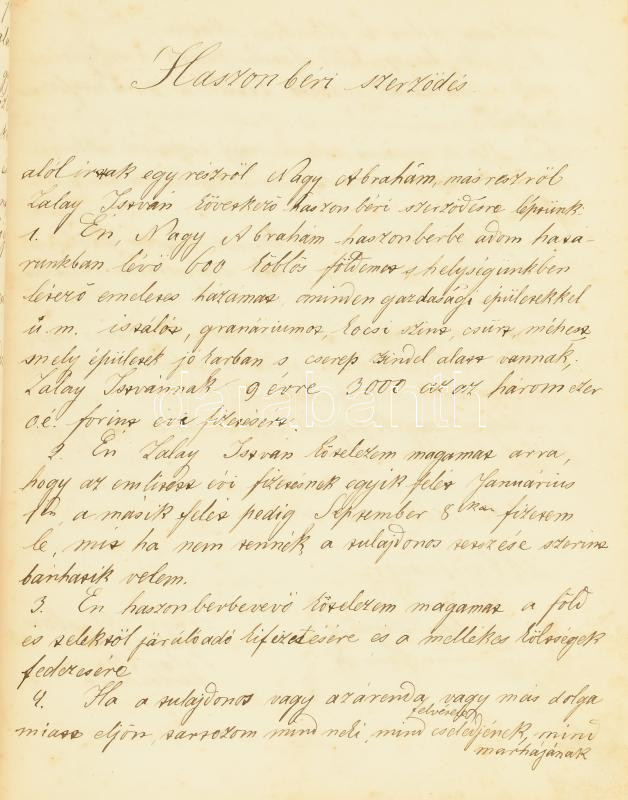 Haszonbéri szerződés
alól írtak egyrészről Nagy Abrahám, másrészről
Zalay István következő haszonbéri szerződésre léptünk:
1. Én, Nagy Abrahám haszonbérbe adom hatá-
runkban lévő 600 köblös földemet s helységünkben
létező emeletes házamat, minden gazdasági épületekkel
ú. m. istálót, granáriumot, kocsi színt, csűrt, méhest,
smely épületek jó karban s cserép zsindel alatt vannak;
Zalay Istvánnak 9 évre 3000 azaz háromezer
o. é. forint évi fizetésért.
2. Én Zalay István kötelezem magamat arra,
hogy az említett évi fizetésnek egyik felét Januárius
1én, a másik felét pedig September 8ikán fizetem
le, mit ha nem tennék, a tulajdonos tetszése szerint
bánhatik velem.
3. Én haszonbérbevevő kötelezem magamat a föld
és telektől járuló adó kifizetésére és a mellékes költségek
fedezésére
4. Ha a tulajdonos vagy az árenda, vagy más dolga
miatt eljön, tartozom mind neki, mind cselédjének, mind
marhájának